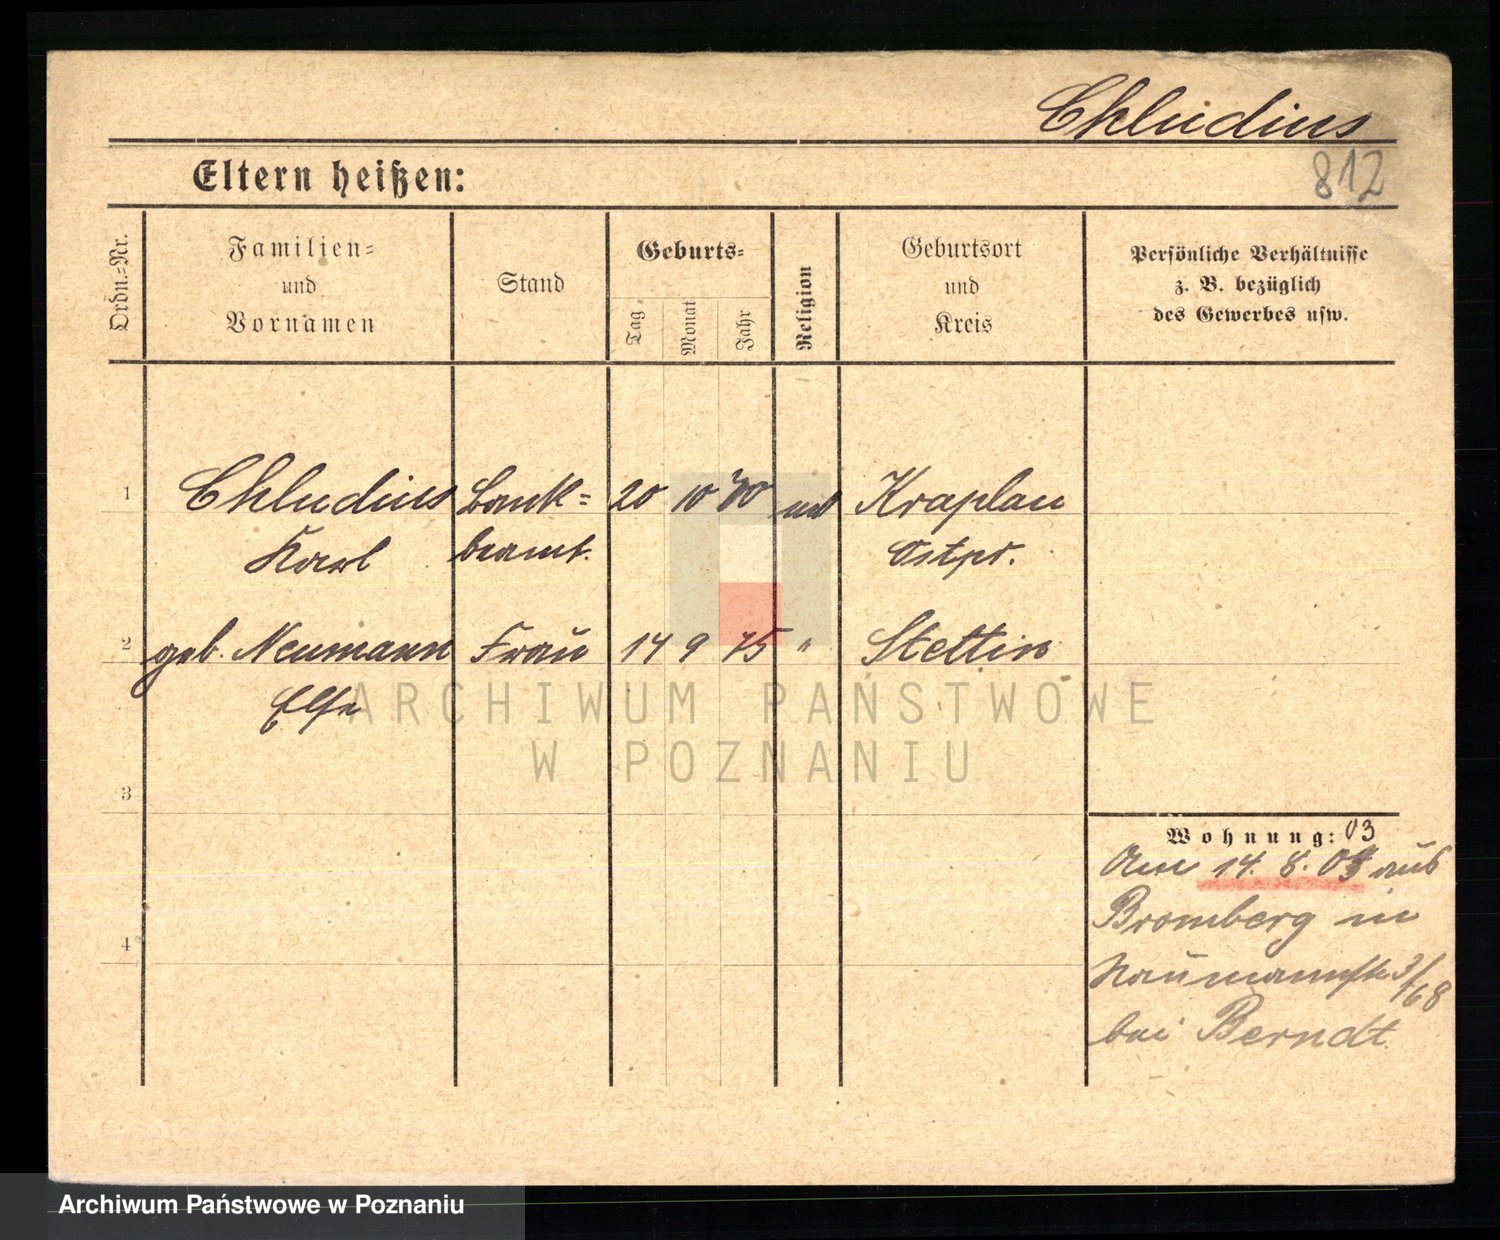 Chludius
812
Eltern heißen:
Ordn.=Nr.
Familien=
und
Vornamen
Stand
Geburts=
Tag
Monat
Jahr
Religion
Geburtsort
und
Kreis
Persönliche Verhältnisse
z. B. bezüglich
des Gewerbes usw.
1
Chludius Bank= 20 10 Kraplau
Karl beamt. Ostpr.
2
geb. Neumann Frau 14 9 75 " Stettin
Else
ARCHIWUM PAŃSTWOWE
W POZNANIU
3
4
Wohnung: 03
Am 14. 8. aus
Bromberg in
Naumannstr. 3/
68
bei Berndt.
Archiwum Państwowe w Poznaniu